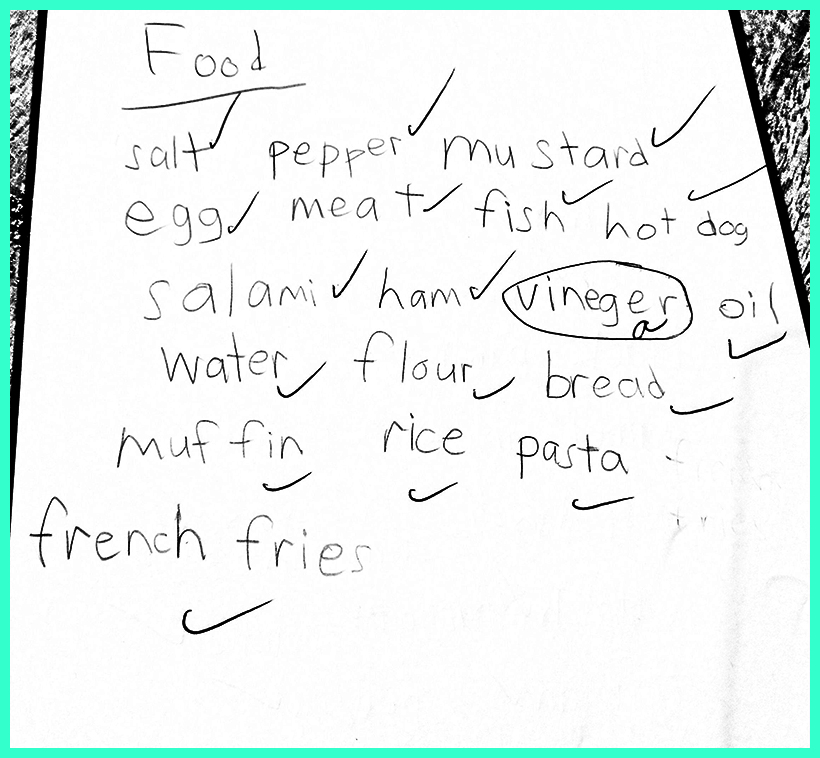 Food
salt pepper mustard
egg meat fish hot dog
salami ham vineger oil
a
water flour bread
muffin rice pasta
french fries